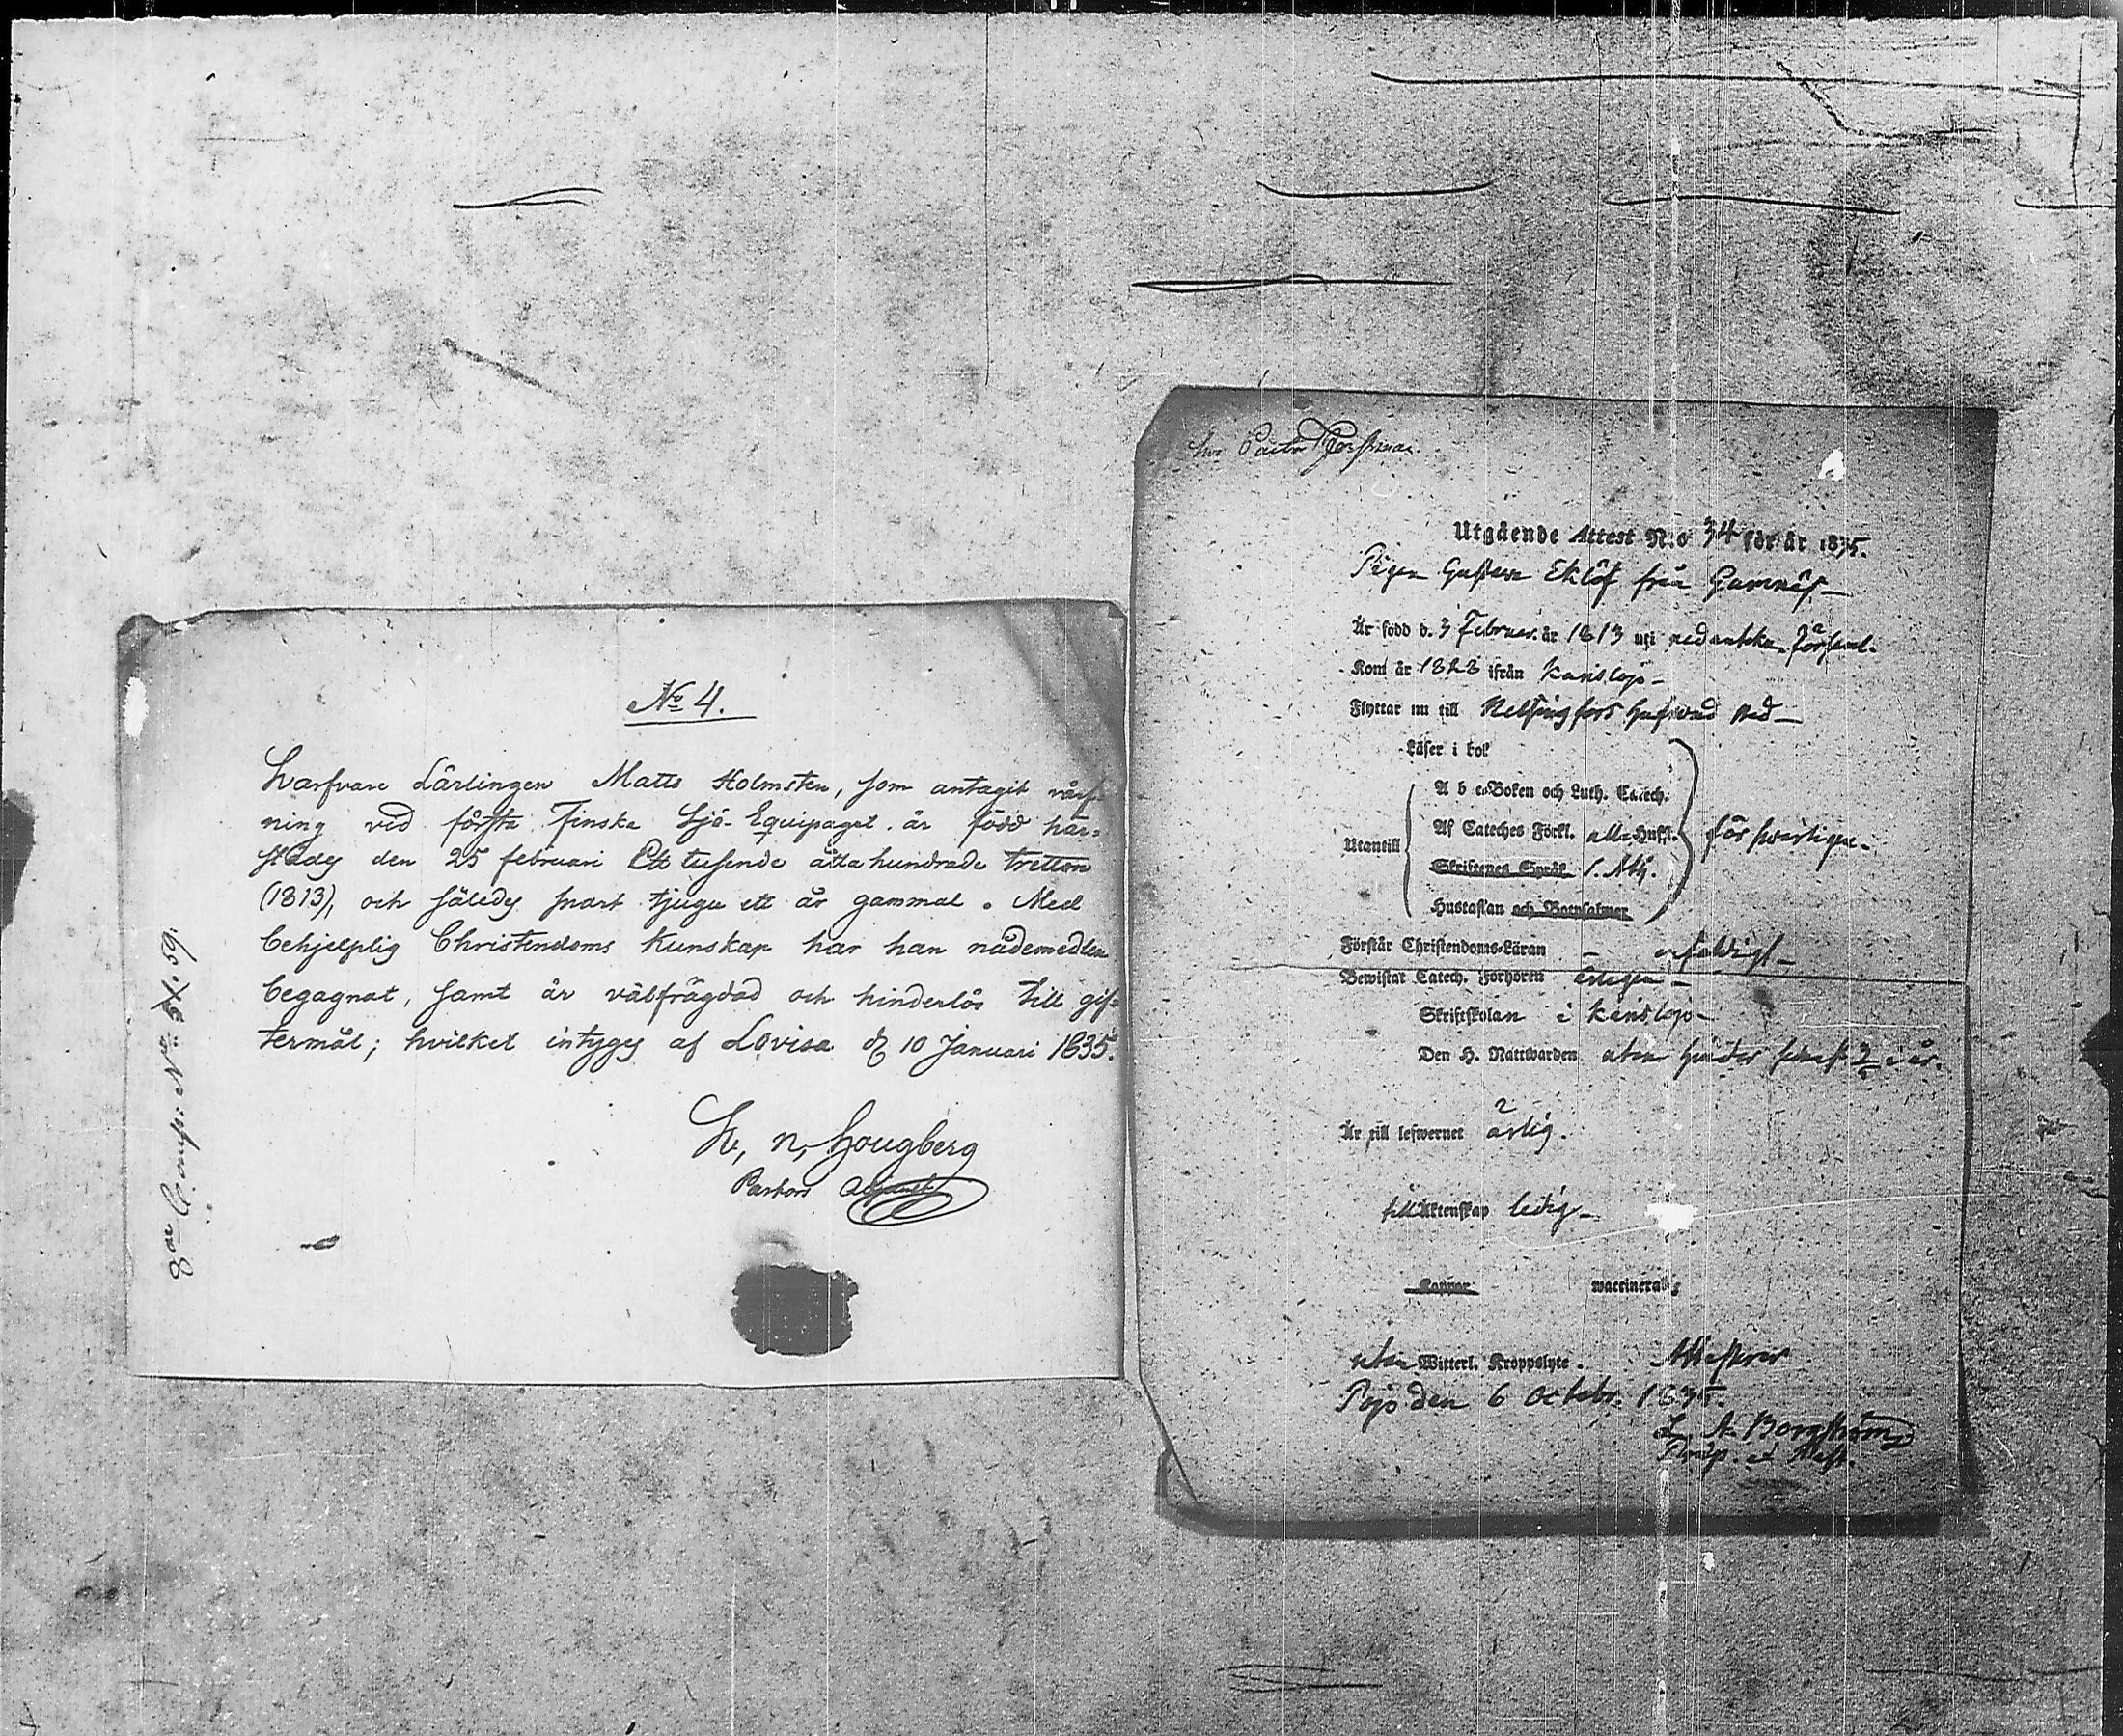 No 4.
Garfvare Lärlingen Matts Holmsten, som antagit värf-
ning vid första Finska Sjö-Equipaget, är född här-
städes den 25 februari Ett tusende åtta hundrade tretton
(1813), och således snart tjugu ett år gammal. Med
behjelplig Christendoms kunskap har han nådemedlen
begagnat, samt är välfrägdad och hinderlös till gif-
termål; hvilket intygas af Lovisa d. 10 Januari 1835.
Hougberg
Pastors
8de Comp: No 59.
Pastor
Utgående Attest N:o 34 för år 1835.
Pigan Gustava Eklöf från Gumnäs
Är född d. 3 Februar. år 1813 uti nedantekn. församl.
Kom år 1828 ifrån Karislojo
Flyttar nu till Helsingfors
Läser i bok
A b c-Boken och Luth. Catech.
Utantill
Af Cateches Förkl. alla Hufst.
försvarligen.
Skriftenes Språk S. Ath.
Hustaflan och Botpsalmer
Förstår Christendoms-Läran enfaldigt
Bewistat Catech. Förhören
Skriftskolan i Karislojo
Den H. Nattwarden utan hinder senast i år.
Är till lefwernet ärlig.
till Äktenskap ledig
Koppor waccinerad
utan Witterl. Kroppslyte. Attesterar
Pojo den 6 Octobr. 1835.
Borgström
Præp. et Past.